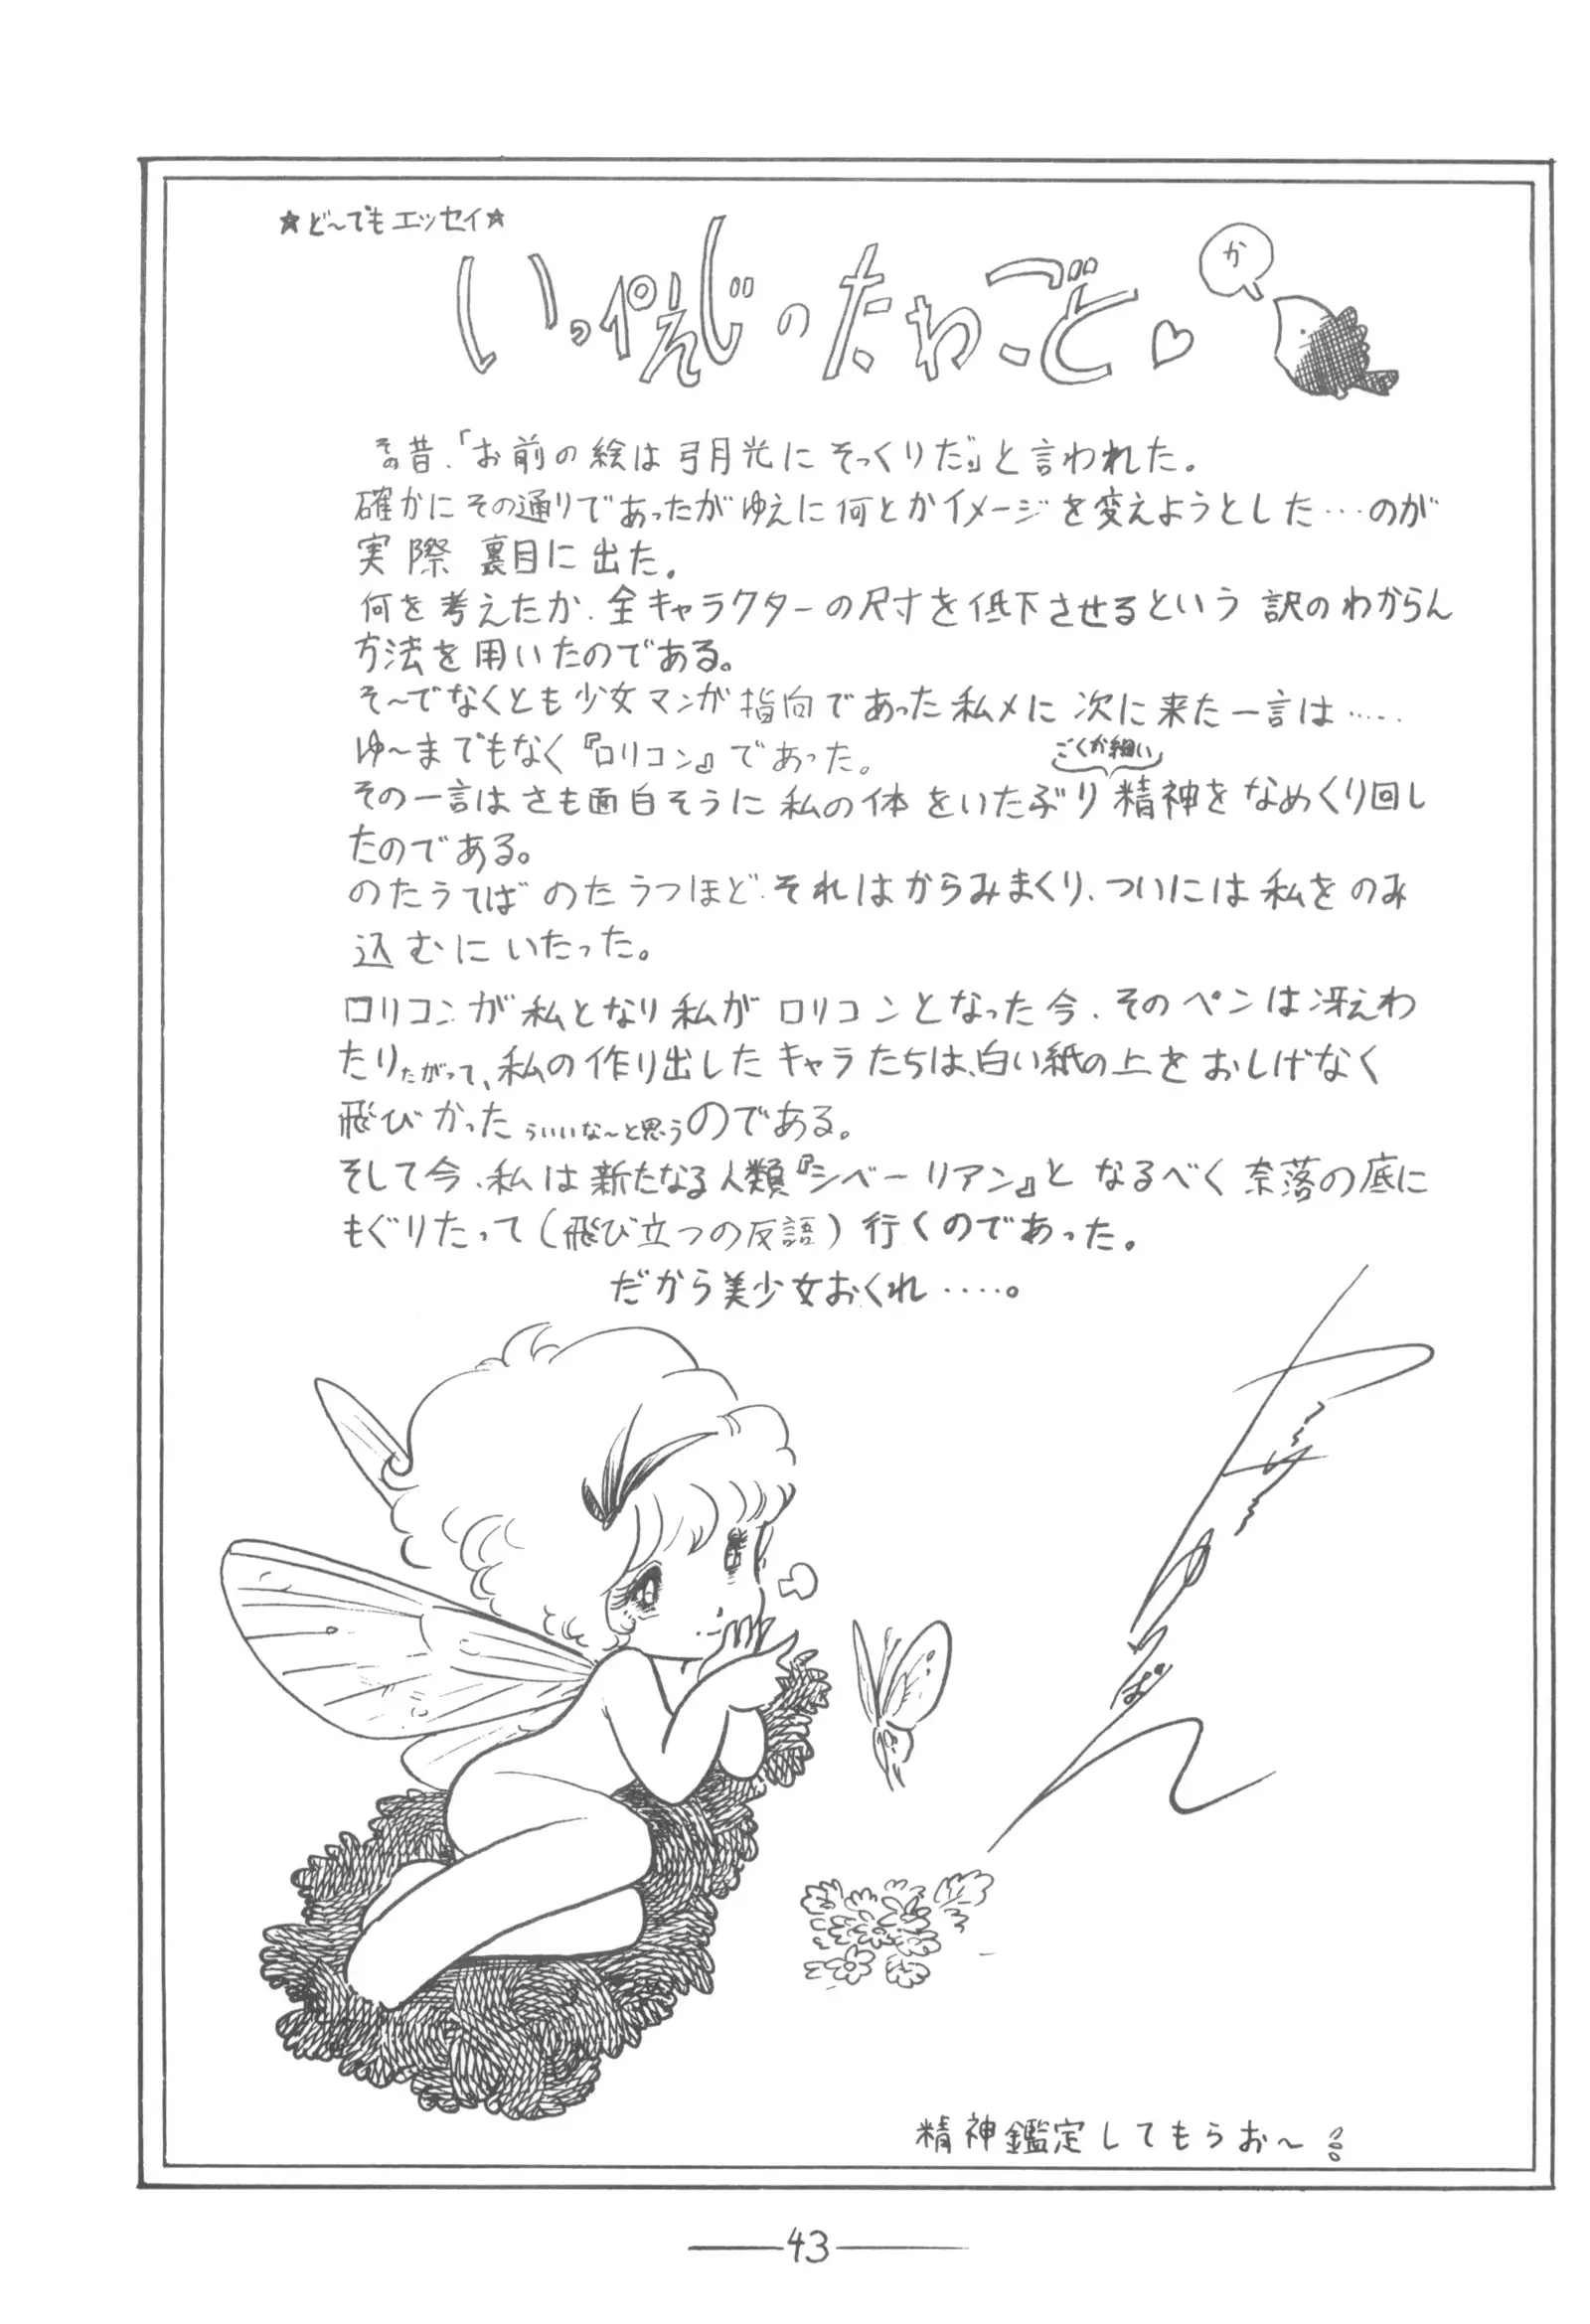 ☆ど〜でもエッセイ☆
か
その昔、「お前の絵は弓月光にそっくりだ」と言われた。
確かにその通りであったがゆえに何とかイメージを変えようとした…のが
実際裏目に出た。
何を考えたか、全キャラクターの尺寸を低下させるという訳のわからん
方法を用いたのである。
そ〜でなくとも少女マンガ指向であった私メに次に来た一言は……
ゆ〜までもなく『ロリコン』であった。
ごくか細い
その一言はさも面白そうに私の体をいたぶり精神をなめくり回し
たのである。
のたうてばのたうつほど、それはからみまくり、ついには私をのみ
込むにいたった。
ロリコンが私となり私がロリコンとなった今、そのペンは冴えわ
たりたがって、私の作り出したキャラたちは、白い紙の上をおしげなく
飛びかったらいいな〜と思うのである。
そして今、私は新たなる人類『シベーリアン』となるべく奈落の底に
もぐりたって(飛び立つの反語)行くのであった。
だから美少女おくれ……。
精神鑑定してもらお〜
43